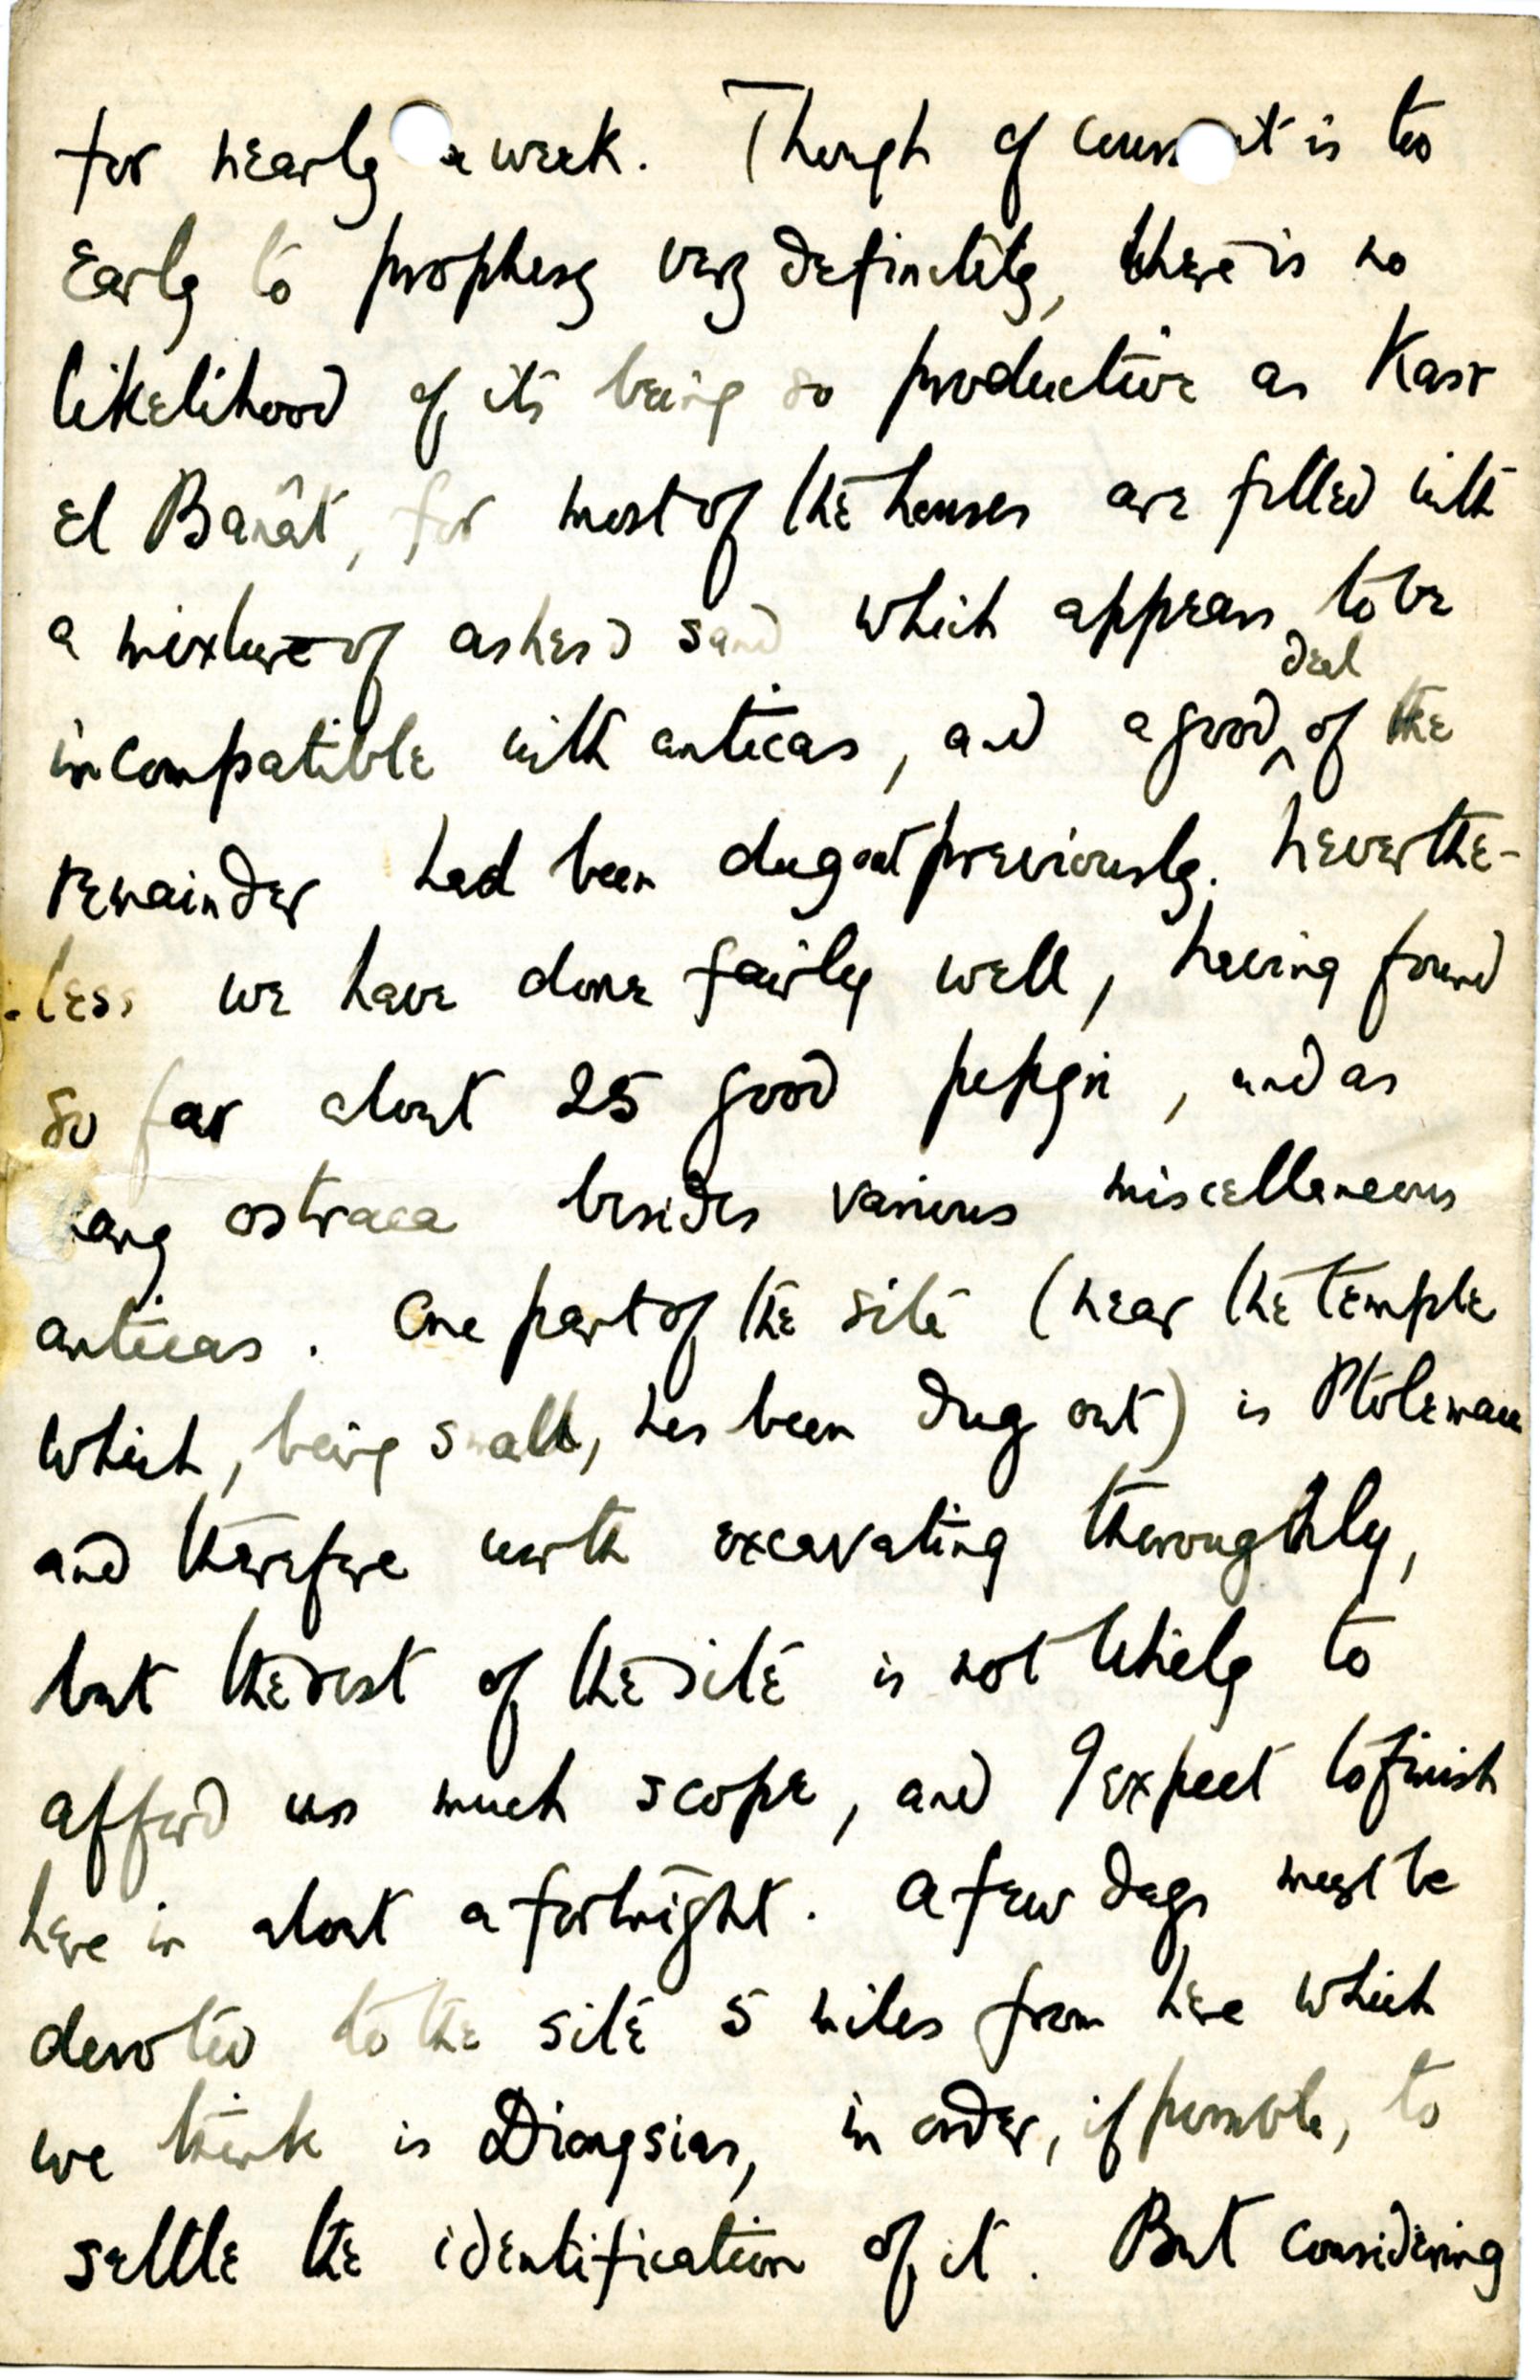 for nearly a week. Though of course it is too
early to prophesy very definitely, there is no
likelihood of its being so productive as Kasr
el Banât, for most of the houses are filled with
a mixture of ashes & sand which appears to be
incompatible with anticas, and a good deal of the
remainder had been dug out previously. Neverthe-
-less we have done fairly well, having found
so far about 25 good papyri, and as
many ostraca besides various miscellaneous
anticas. One part of the site (near the temple
which, being small, has been dug out) is Ptolemaic
and therefore worth excavating thoroughly,
but the rest of the site is not likely to
afford us much scope, and I expect to finish
here in about a fortnight. A few days must be
devoted to the site 5 miles from here which
we think is Dionysias, in order, if possible, to
settle the identification of it. But considering